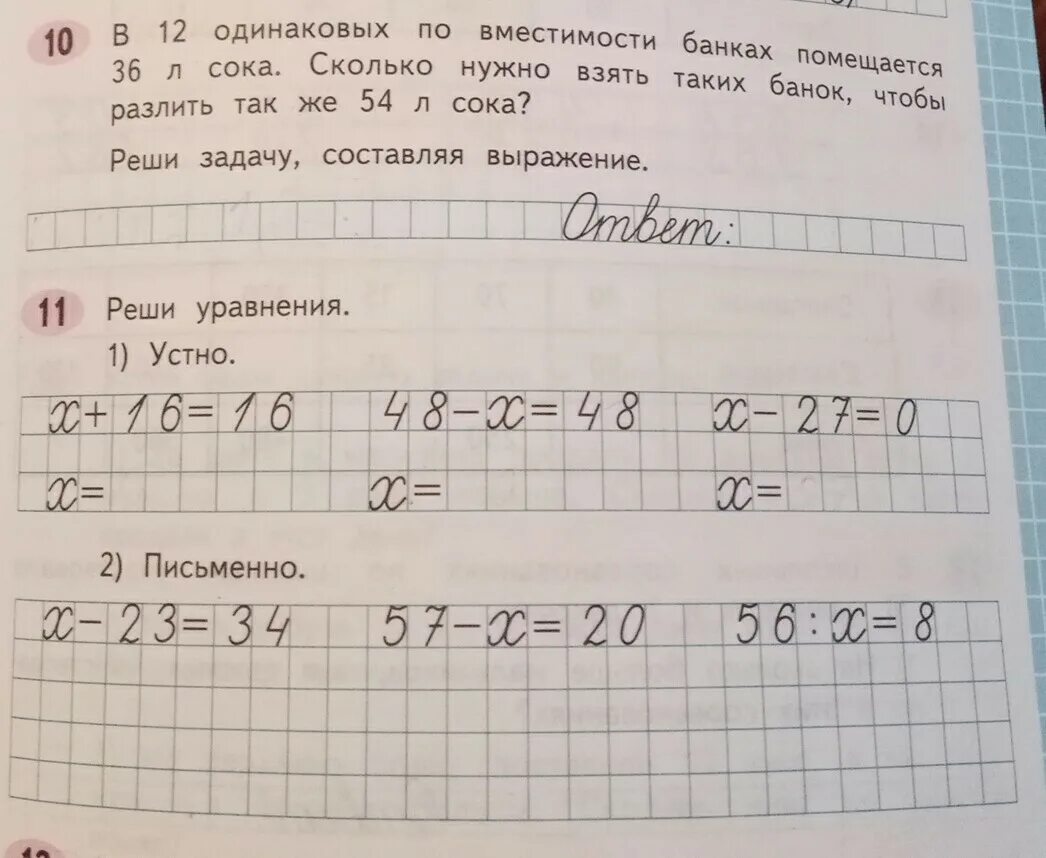 10 В 12 одинаковых по вместимости банках помещается
36 л сока. Сколько нужно взять таких банок, чтобы
разлить так же 54 л сока?
Реши задачу, составляя выражение.
Ответ:
11 Реши уравнения.
1) Устно.
x+16=16 48-x=48 x-27=0
x= x= x=
2) Письменно.
x-23=34 57-x=20 56:x=8